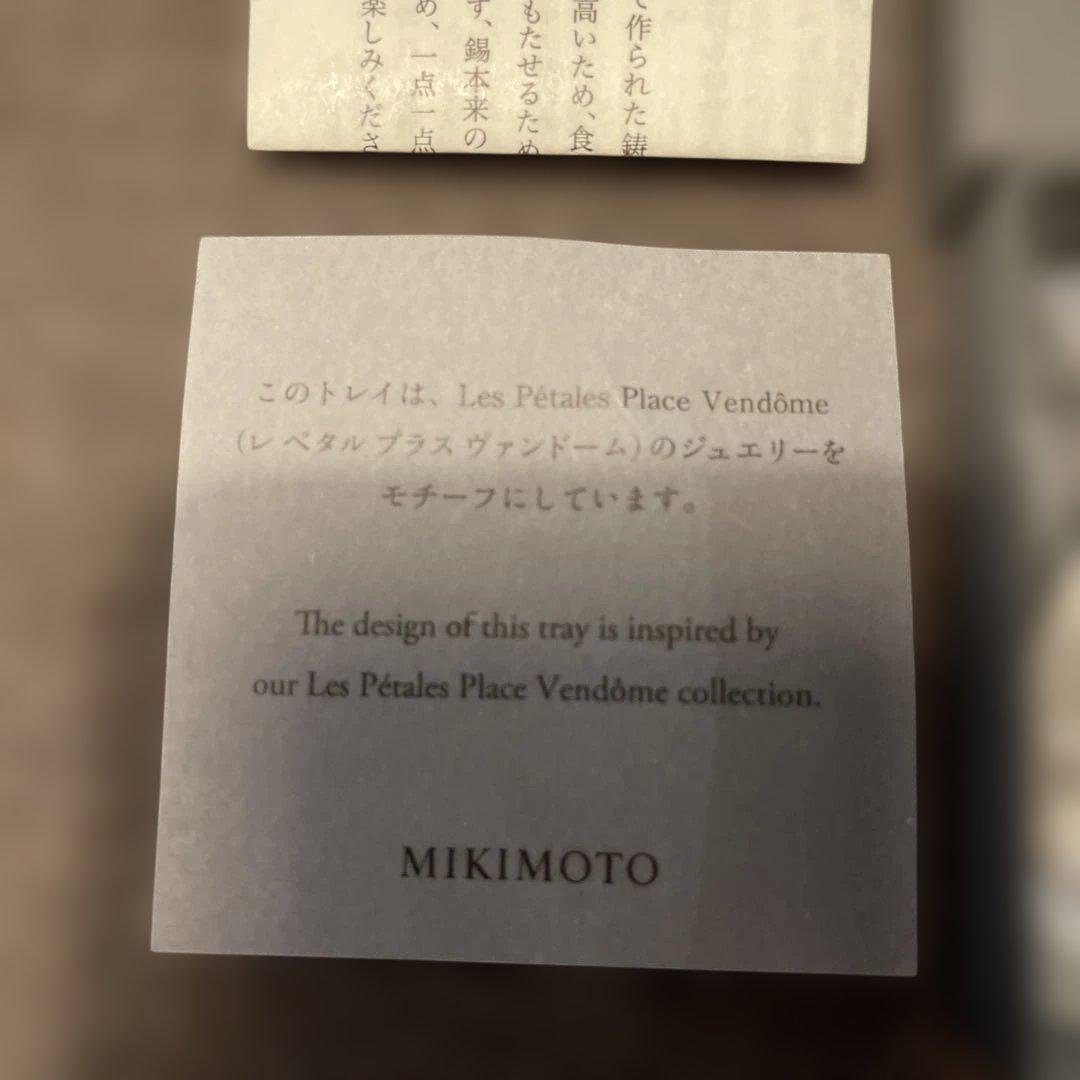 て作られた鋳
高いため、食
もたせるため
す、錫本来の
め、一点一点
楽しみくださ
このトレイは、Les Pétales Place Vendôme
(レ ペタル プラス ヴァンドーム)のジュエリーを
モチーフにしています。
The design of this tray is inspired by
our Les Pétales Place Vendôme collection.
MIKIMOTO